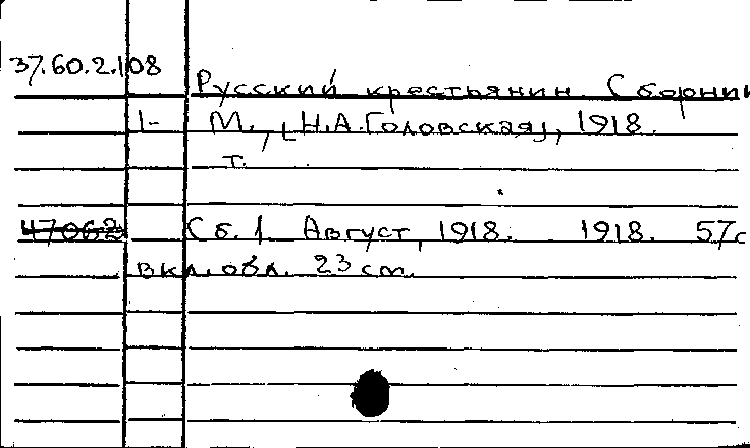 37.60.2.108
Русский крестьянин. Сборник
1- М., [Н.А.Головская], 1918.
т.
47062 Сб. 1. Август, 1918. 1918. 57с
вкл. обл. 23 cm.